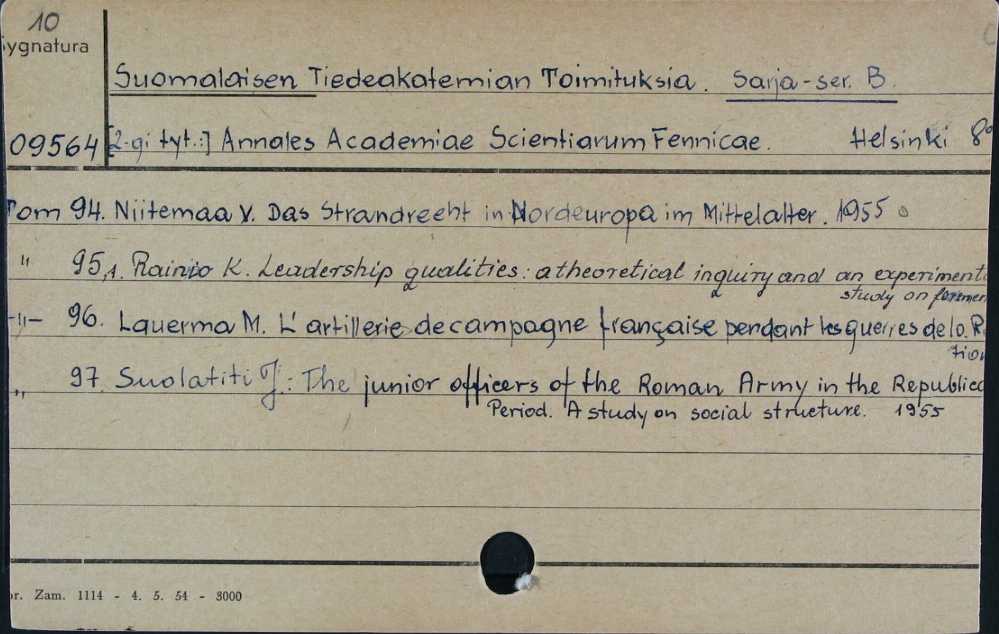 10
ygnatura
Suomalaisen Tiedeakatemian Toimituksia. Sarja-ser. B.
09564 [2-gi tyt.:] Annales Academiae Scientiarum Fennicae. Helsinki 8°
Tom 94. Niitemaa V. Das Strandrecht in Nordeuropa im Mittelalter. 1955
" 95,1. Rainio K. Leadership qualities: a theoretical inquiry and an experiment
study on foremen
-"- 96. Lauerma M. L'artillerie de campagne française pendant les guerres de la R
tion
" 97. Suolatiti J.: The junior officers of the Roman Army in the Republica
Period. A study on social structure. 1955
r. Zam. 1114 - 4. 5. 54 - 3000